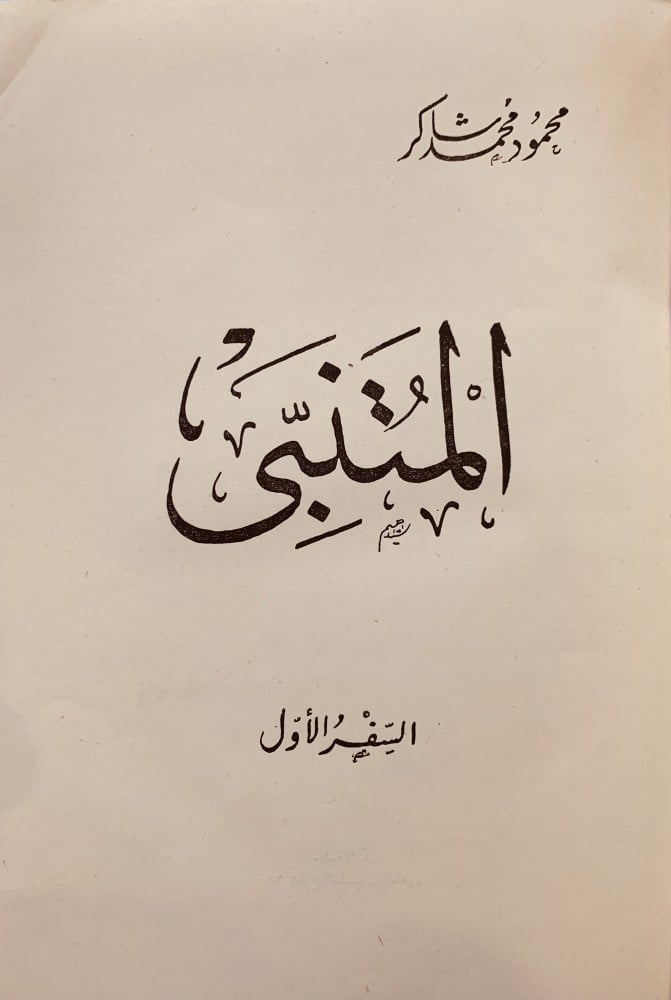 محمود محمد شاكر
المُتَنَبِّى
السِّفْرُ الأوّل